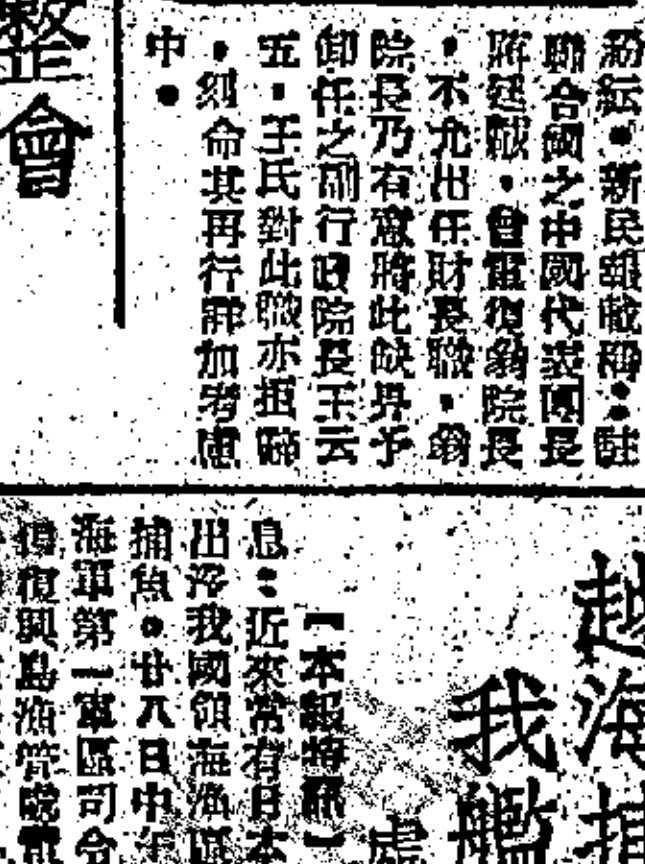 紛紜。新民報載稱：駐
聯合國之中國代表團長
蔣廷黻，曾電復翁院長
，不允出任財長職，翁
院長乃有意將此缺畀予
卸任之副行政院長王云
五，王氏對此職亦拒辭
，刻命其再行詳加考慮
中。
整會
越海捕
我艦
【本報特訊】
息：近來常有日本
出沒我國領海漁區
捕魚。廿八日中午
海軍第一軍區司令
復興島漁管處電